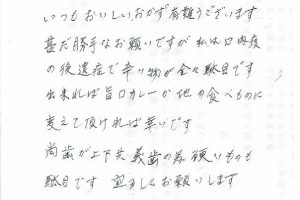 いつもおいしいおかず有難うございます
甚だ勝手なお願いですが私は口内炎
の後遺症で辛り物が全々駄目です
出来れば旨口カレーか他の食べものに
変えて頂ければ幸いです
尚歯が上下共義歯の為硬いものも
駄目です 宜しくお願いします